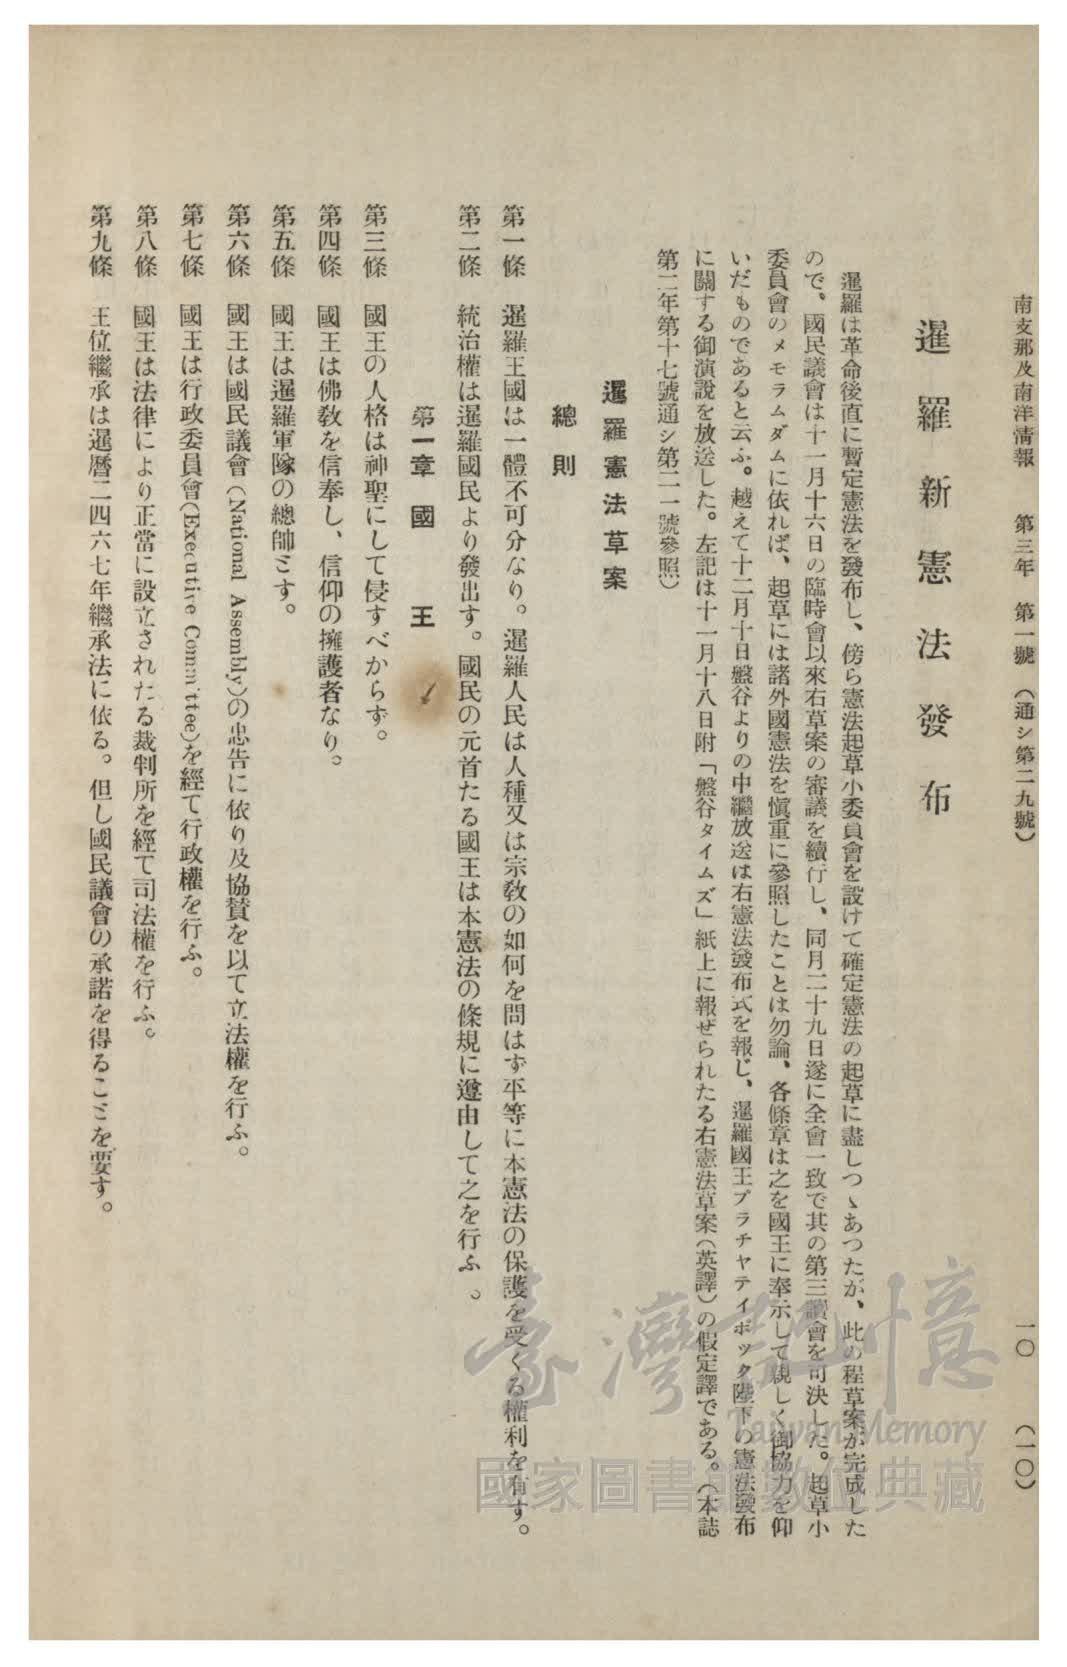 南支那及南洋情報　第三年　第一號（通シ第二九號）　一〇　（一〇）
暹羅新憲法發布
暹羅は革命後直に暫定憲法を發布し、傍ら憲法起草小委員會を設けて確定憲法の起草に盡しつゝあつたが、此の程草案が完成した
ので、國民議會は十一月十六日の臨時會以來右草案の審議を續行し、同月二十九日遂に全會一致で其の第三讀會を可決した。起草小
委員會のメモラムダムに依れば、起草には諸外國憲法を愼重に參照したことは勿論、各條章は之を國王に奉示して親しく御協力を仰
いだものであると云ふ。越えて十二月十日盤谷よりの中繼放送は右憲法發布式を報じ、暹羅國王プラチヤテイポツク陛下の憲法發布
に關する御演說を放送した。左記は十一月十八日附「盤谷タイムズ」紙上に報ぜられたる右憲法草案（英譯）の假定譯である。（本誌
第二年第十七號通シ第二一號參照）
暹羅憲法草案
總則
第一條　暹羅王國は一體不可分なり。暹羅人民は人種又は宗敎の如何を問はず平等に本憲法の保護を受くる權利を有す。
第二條　統治權は暹羅國民より發出す。國民の元首たる國王は本憲法の條規に遵由して之を行ふ。
第一章　國　王
第三條　國王の人格は神聖にして侵すべからず。
第四條　國王は佛敎を信奉し、信仰の擁護者なり。
第五條　國王は暹羅軍隊の總帥とす。
第六條　國王は國民議會（National Assembly）の忠告に依り及協賛を以て立法權を行ふ。
第七條　國王は行政委員會（Executive Committee）を經て行政權を行ふ。
第八條　國王は法律により正當に設立されたる裁判所を經て司法權を行ふ。
第九條　王位繼承は暹曆二四六七年繼承法に依る。但し國民議會の承諾を得ることを要す。
臺灣記憶
Taiwan Memory
國家圖書館數位典藏